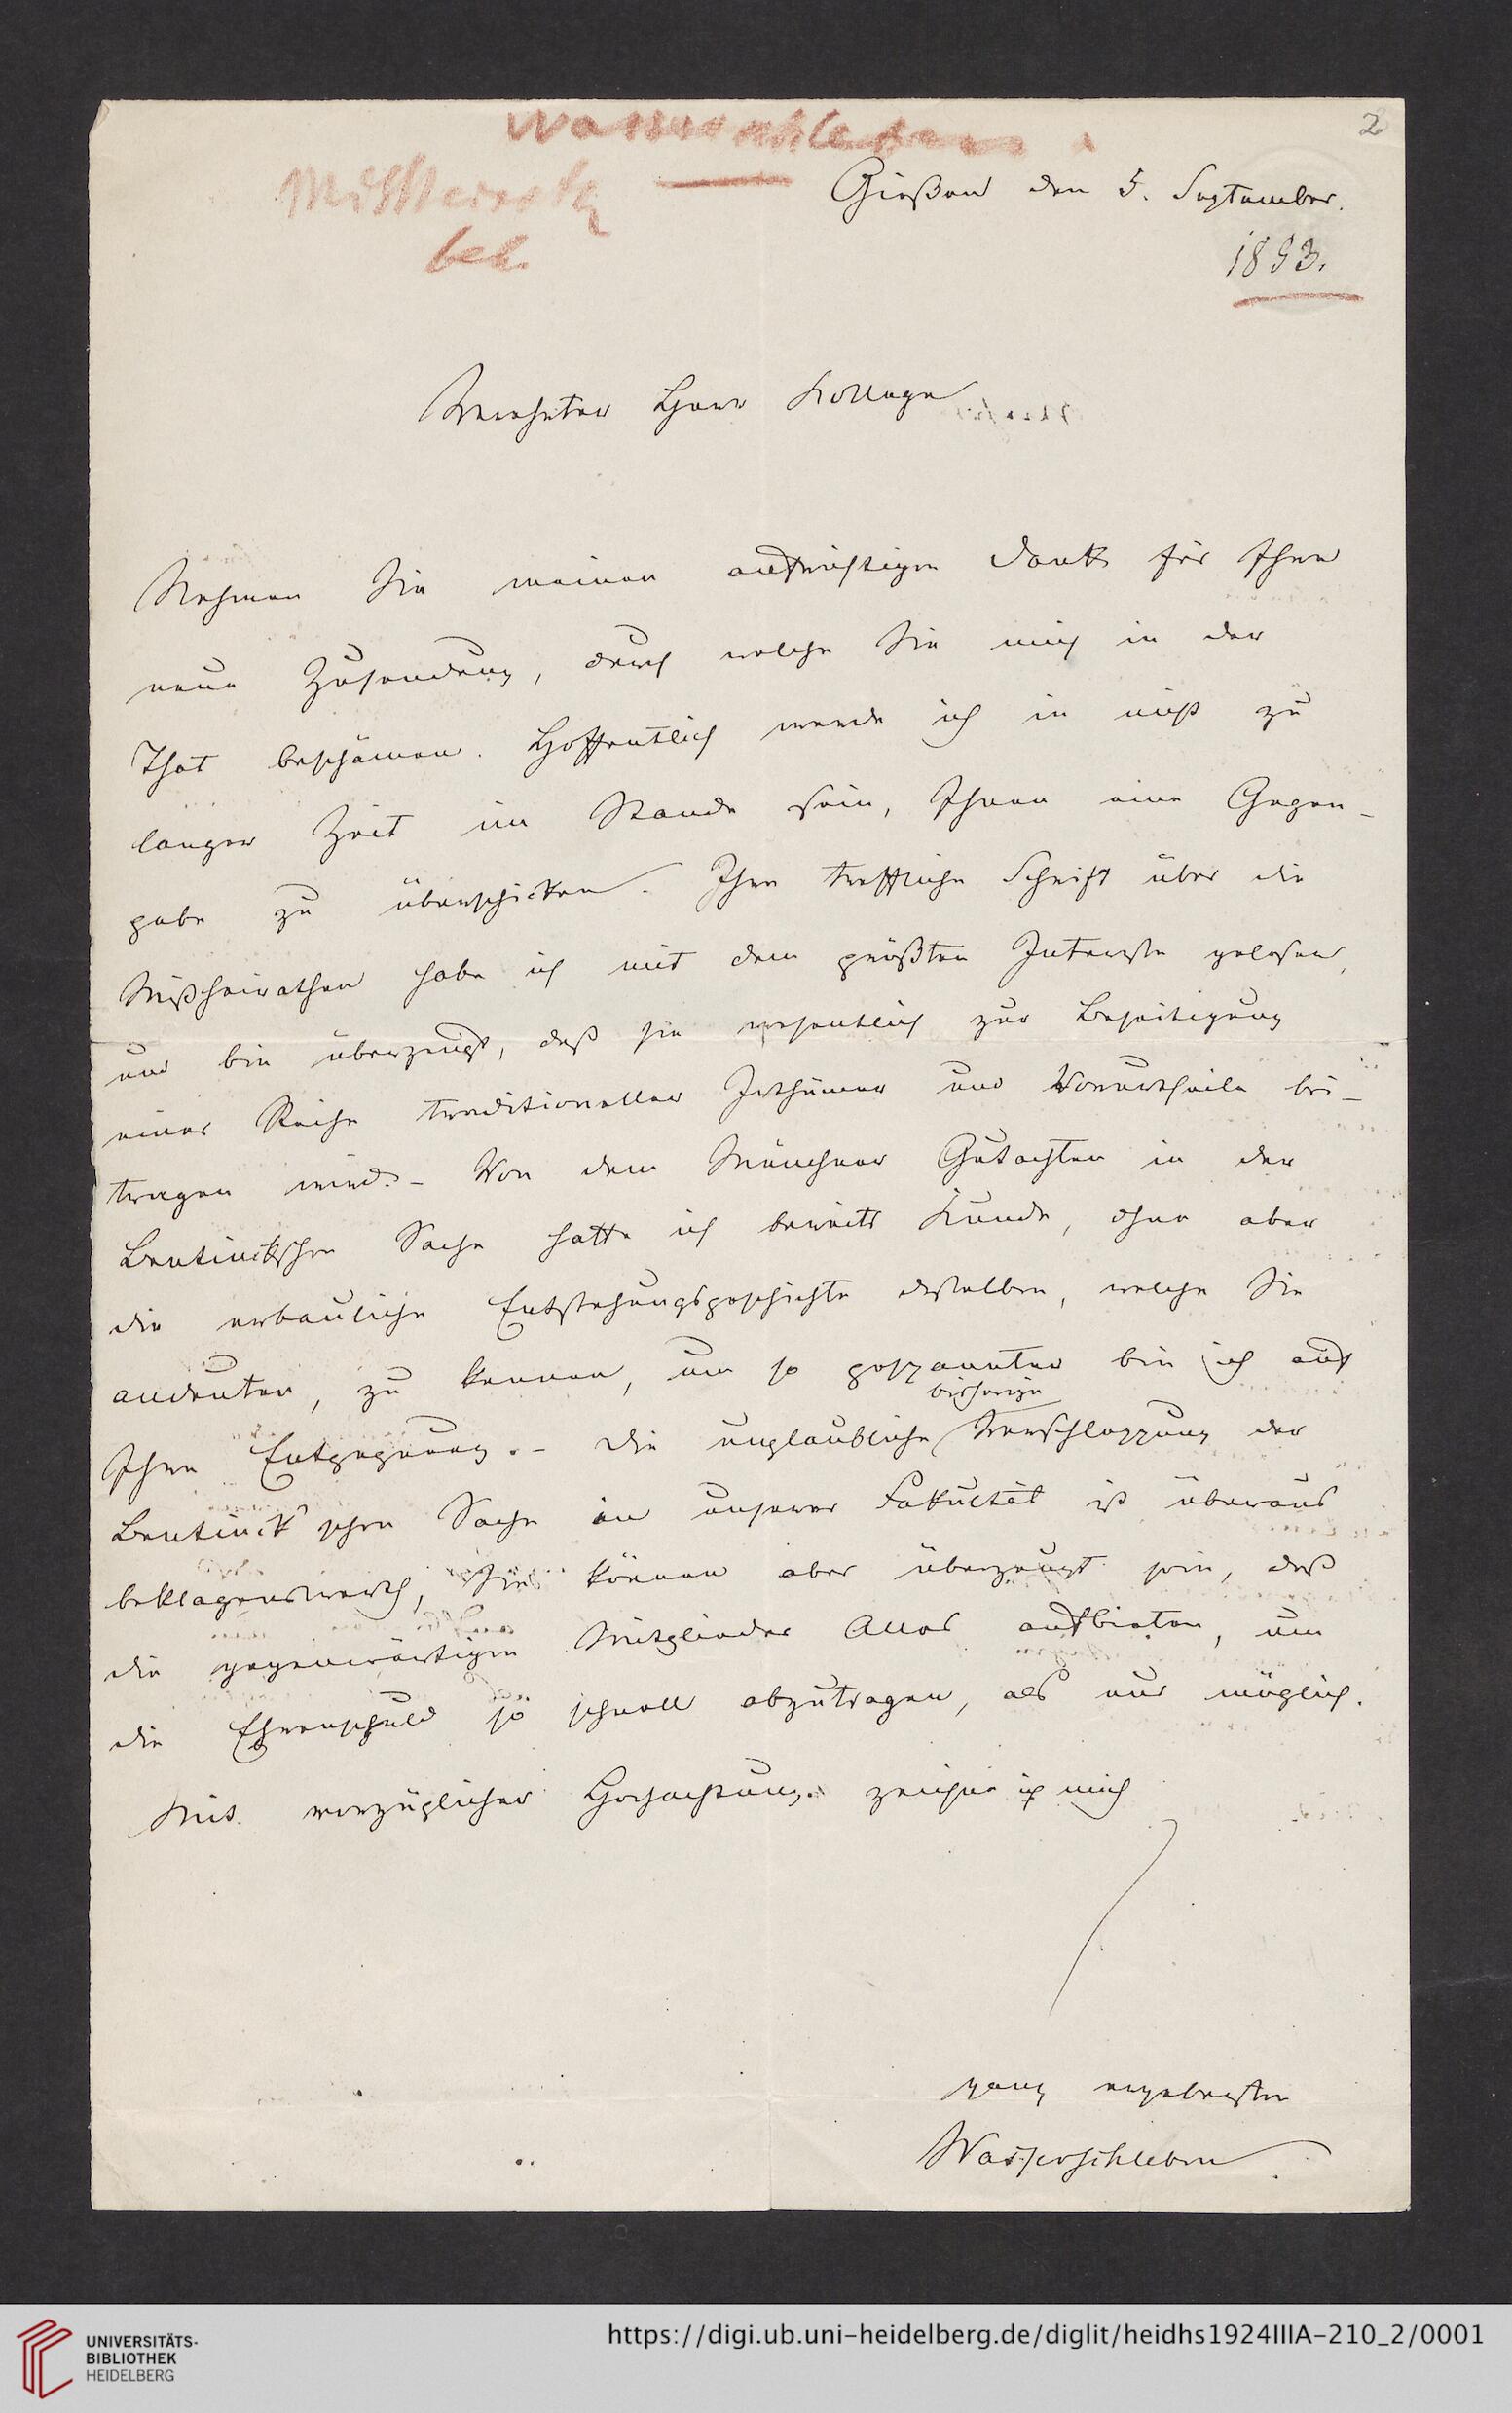 Wasserschleben.
2
Mißheirath
bet.
Gießen den 5. September.
1853.
Verehrter Herr Kollege
Nehmen Sie meinen aufrichtigen Dank für Ihre
neue Zusendung, durch welche Sie mich in der
That beschämen. Hoffentlich werde ich in nicht zu
langer Zeit im Stande sein, Ihnen eine Gegen-
gabe zu überschicken. Ihre treffliche Schrift über die
Mißheirathen habe ich mit dem größten Interesse gelesen,
und bin überzeugt, daß sie wesentlich zur Beseitigung
einer Reihe traditioneller Irthümer und Vorurtheile bei-
tragen wird. - Von dem Münchner Gutachten in der
Bentinckschen Sache hatte ich bereits Kunde, ohne aber
die erbauliche Entstehungsgeschichte desselben, welche Sie
andeuten, zu kennen, um so gespannter bin ich auf
Ihre Entgegnung. - Die unglaubliche bisherige Verschleppung der
Bentinck'schen Sache in unserer Fakultät ist überaus
beklagenswerth, Sie können aber überzeugt sein, daß
die gegenwärtigen Mitglieder Alles aufbieten, um
die Ehrenschuld so schnell abzutragen, als nur möglich.
Mit vorzüglicher Hochachtung zeichne ich mich
ganz ergebenster
Wasserschleben
UNIVERSITÄTS-
BIBLIOTHEK
HEIDELBERG
https://digi.ub.uni-heidelberg.de/diglit/heidhs1924IIIA-210_2/0001